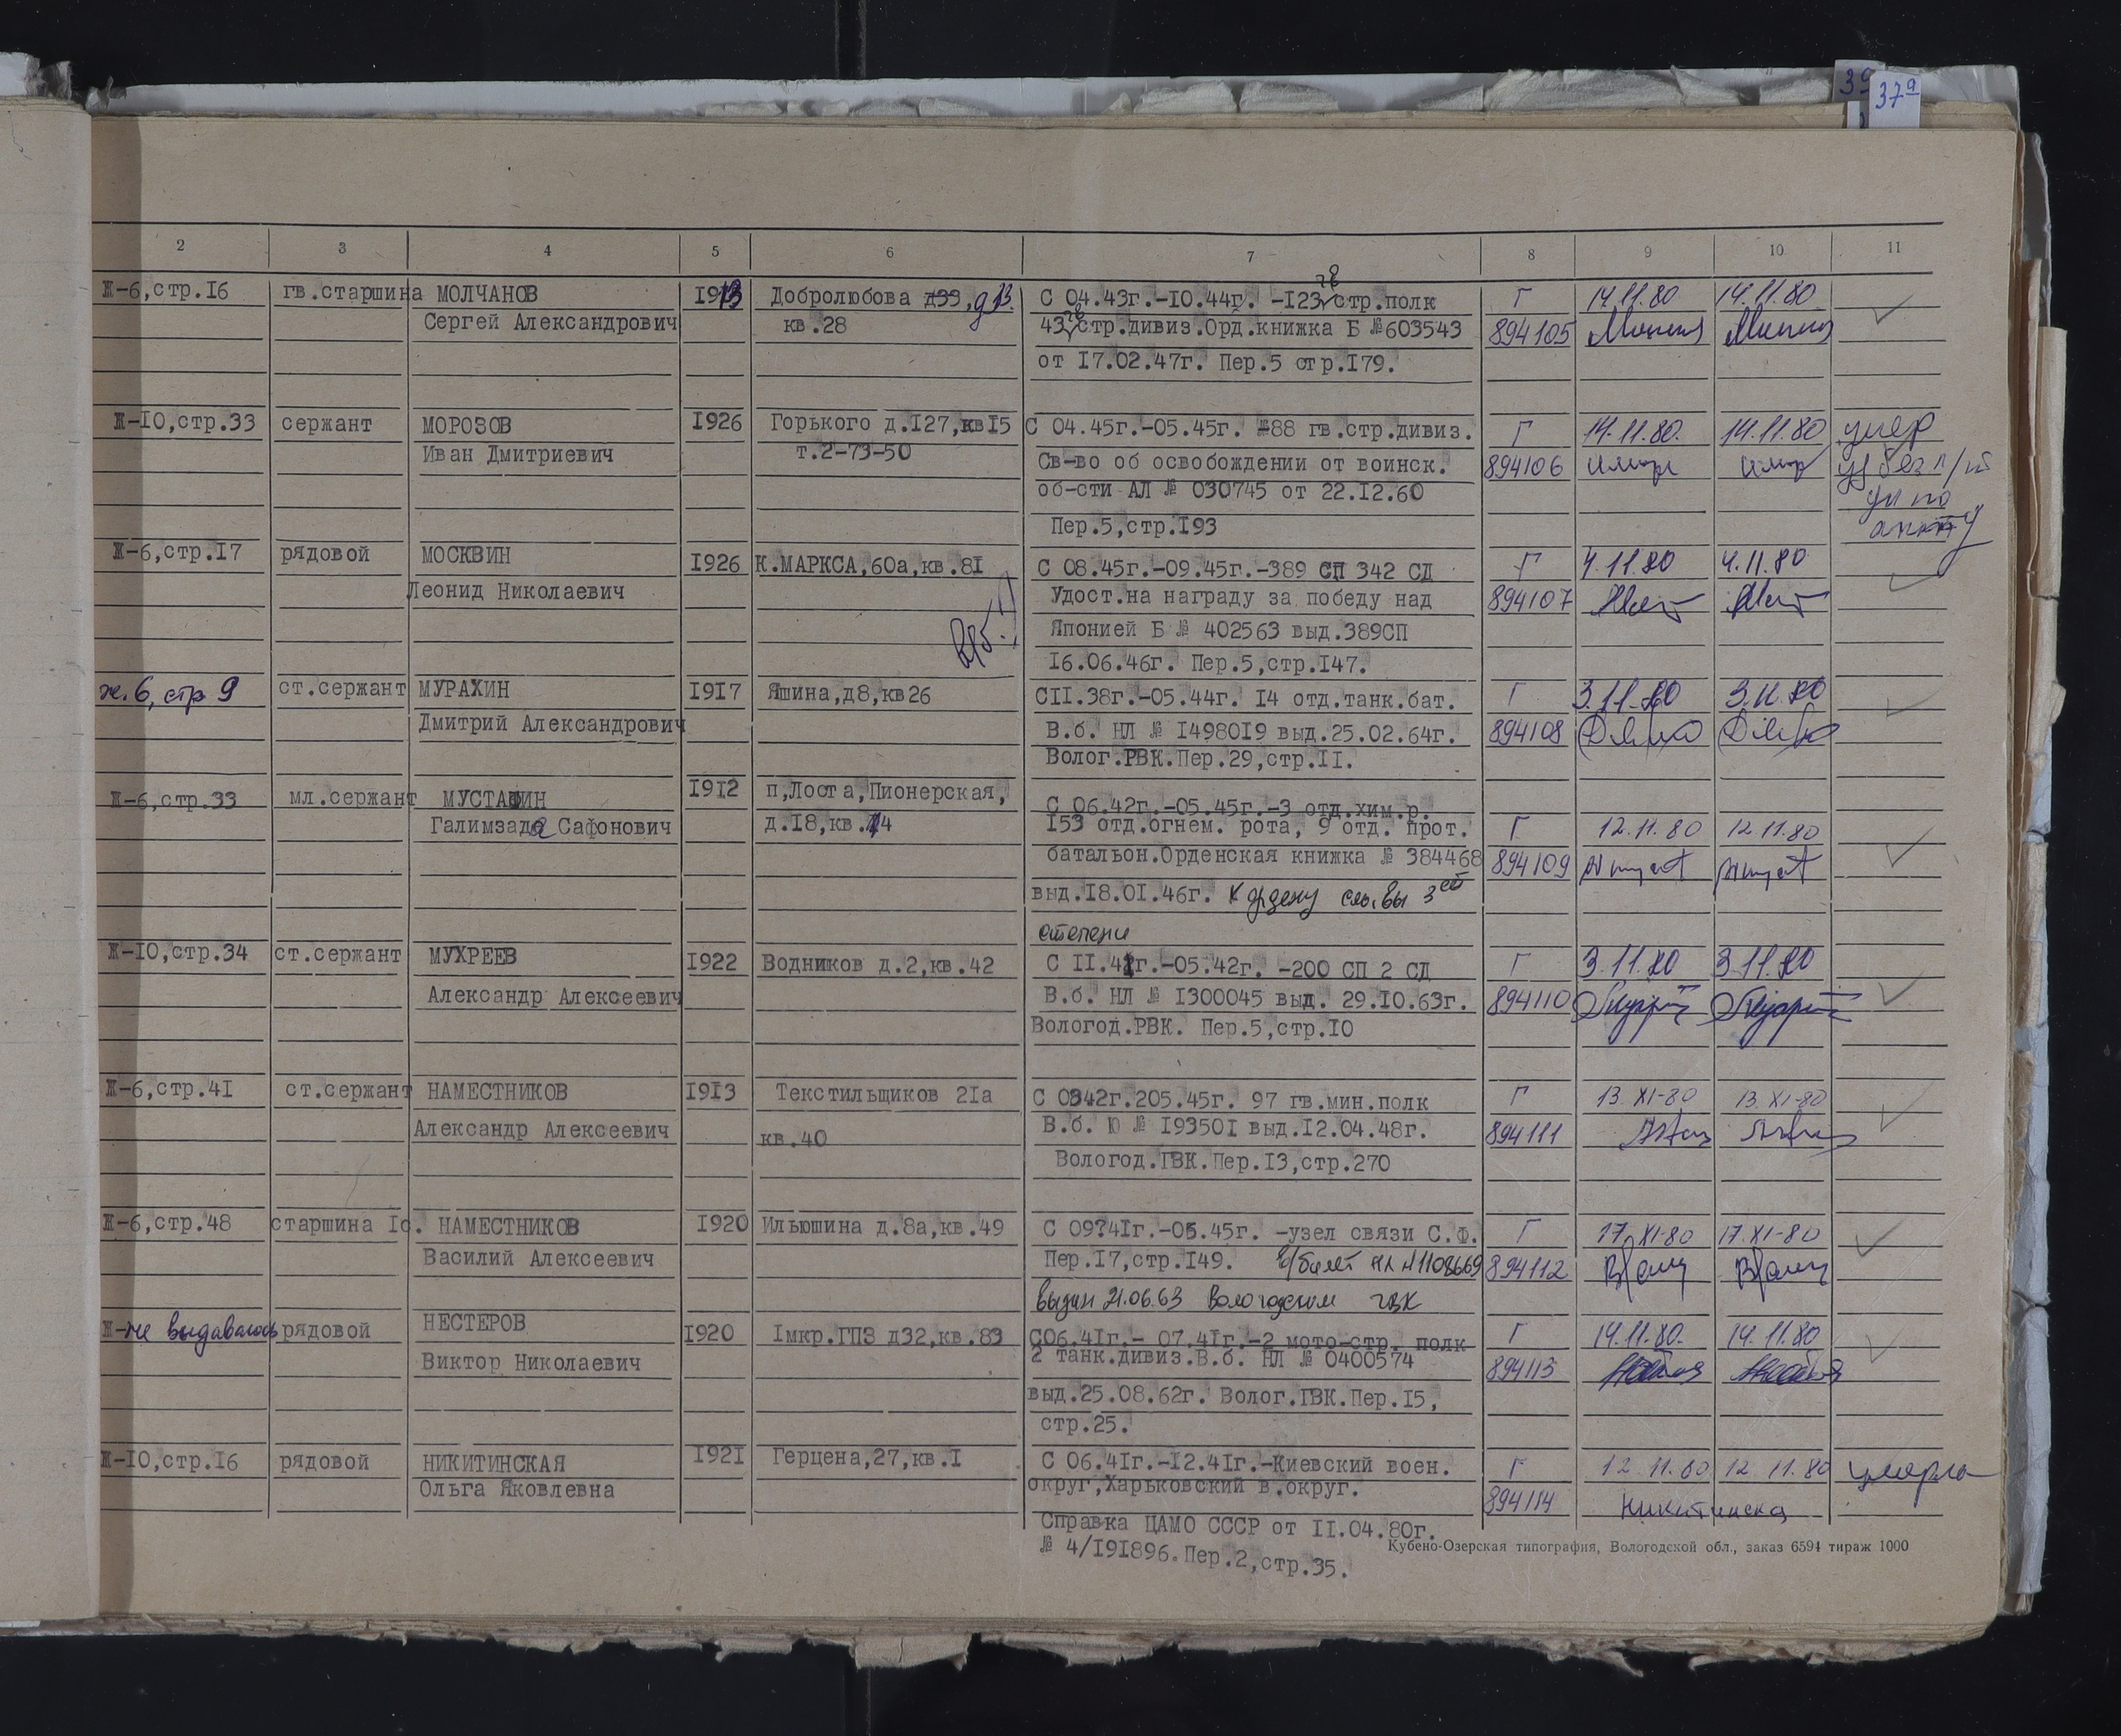 37а
2 3 4 5 6 7 8 9 10 11
Ж-6,стр.16 гв.старшина МОЛЧАНОВ 1913 Добролюбова д33, д13. С 04.43г.-10.44г. -123 стр.полк Г 14.11.80 14.11.80
Сергей Александрович кв.28 43 стр.дивиз.Орд.книжка Б №603543 894105
от 17.02.47г. Пер.5 стр.179.
Ж-10,стр.33 сержант МОРОЗОВ 1926 Горького д.127,кв15 С 04.45г.-05.45г. -88 гв.стр.дивиз. Г 14.11.80. 14.11.80 умер
Иван Дмитриевич т.2-73-50 Св-во об освобождении от воинск. 894106
об-сти АЛ № 030745 от 22.12.60
Пер.5,стр.193
Ж-6,стр.17 рядовой МОСКВИН 1926 К.МАРКСА,60а,кв.81 С 08.45г.-09.45г.-389 СП 342 СД Г 4.11.80 4.11.80
Леонид Николаевич Удост.на награду за победу над 894107
Японией Б № 402563 выд.389СП
16.06.46г. Пер.5,стр.147.
ж.6, стр 9 ст.сержант МУРАХИН 1917 Яшина,д8,кв26 С11.38г.-05.44г. 14 отд.танк.бат. Г 3.11.80 3.11.80
Дмитрий Александрович В.б. НЛ № 1498019 выд.25.02.64г. 894108
Волог.РВК.Пер.29,стр.11.
Ж-6,стр.33 мл.сержант МУСТАФИН 1912 п,Лоста,Пионерская, С 06.42г.-05.45г.-3 отд.хим.р.
Галимзада Сафонович д.18,кв.14 153 отд.огнем. рота, 9 отд. прот. Г 12.11.80 12.11.80
батальон.Орденская книжка № 384468 894109
выд.18.01.46г. К ордену славы 3ей
степени
Ж-10,стр.34 ст.сержант МУХРЕЕВ 1922 Водников д.2,кв.42 С 11.41г.-05.42г. -200 СП 2 СД Г 3.11.80 3.11.80
Александр Алексеевич В.б. НЛ № 1300045 выд. 29.10.63г. 894110
Вологод.РВК. Пер.5,стр.10
Ж-6,стр.41 ст.сержант НАМЕСТНИКОВ 1913 Текстильщиков 21а С 0342г.205.45г. 97 гв.мин.полк Г 13.XI-80 13.XI-80
Александр Алексеевич кв.40 В.б. Ю № 193501 выд.12.04.48г. 894111
Вологод.ГВК.Пер.13,стр.270
Ж-6,стр.48 старшина 1с. НАМЕСТНИКОВ 1920 Ильюшина д.8а,кв.49 С 09?41г.-05.45г. -узел связи С.Ф. Г 17.XI-80 17.XI-80
Василий Алексеевич Пер.17,стр.149. в/билет НЛ №1108669 894112
выдан 21.06.63 Вологодским ГВК
Ж-не выдавалось рядовой НЕСТЕРОВ 1920 1мкр.ГПЗ д32,кв.83 С06.41г.- 07.41г.-2 мото-стр. полк Г 14.11.80. 14.11.80
Виктор Николаевич 2 танк.дивиз.В.б. НЛ № 0400574 894113
выд.25.08.62г. Волог.ГВК.Пер.15,
стр.25.
Ж-10,стр.16 рядовой НИКИТИНСКАЯ 1921 Герцена,27,кв.1 С 06.41г.-12.41г.-Киевский воен. Г 12.11.80 12.11.80 умерла
Ольга Яковлевна округ,Харьковский в.округ. 894114 Никитинска
Справка ЦАМО СССР от 11.04.80г.
№ 4/191896. Пер.2,стр.35.
Кубено-Озерская типография, Вологодской обл., заказ 6594 тираж 1000